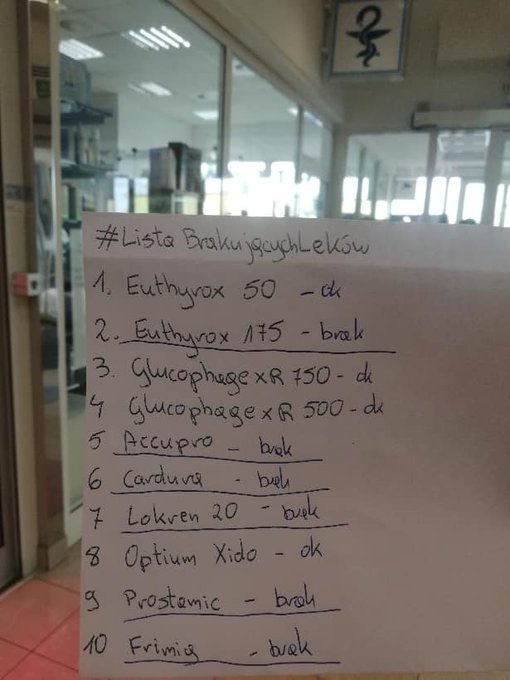 #Lista BrakującychLeków
1. Euthyrox 50 - ok
2. Euthyrox 175 - brak
3. Glucophage XR 750 - ok
4 Glucophage XR 500 - ok
5 Accupro - brak
6 Cardura - brak
7 Lokren 20 - brak
8 Optium Xido - ok
9 Prostamic - brak
10 Frimig - brak